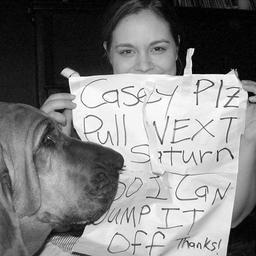 Casey Plz
Pull NEXT
Saturn
So I Can
Jump IT
Off Thanks!